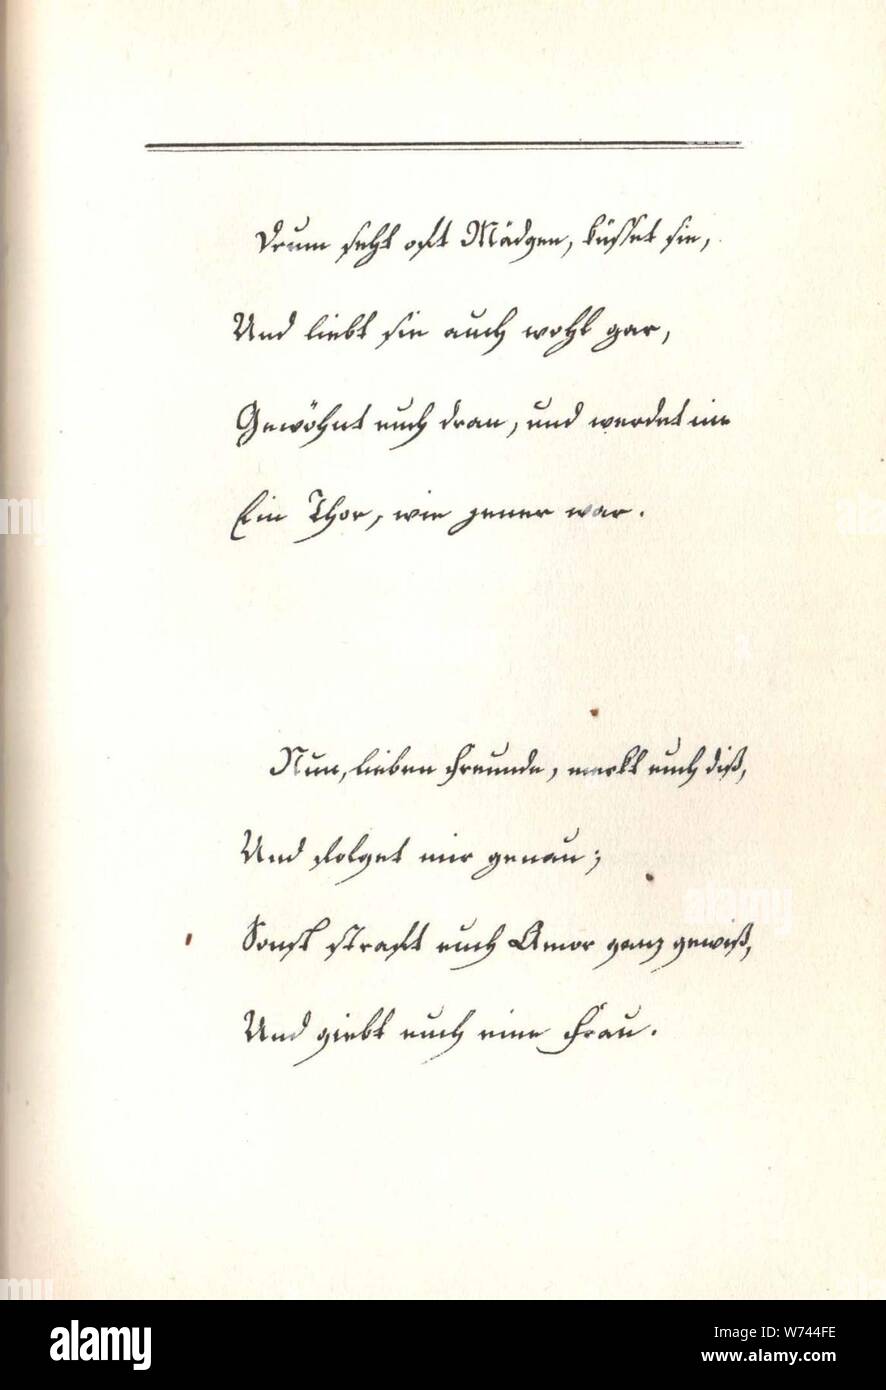 Drum seht oft Mädgen, küsset sie,
Und liebt sie auch wohl gar,
Gewöhnt euch dran, und werdet nie
Ein Thor, wie jener war.
Nun, lieben Freunde, merkt euch diß,
Und folget mir genau;
Sonst straft euch Amor ganz gewiß,
Und giebt euch eine Frau.
alamy
alamy
Image ID: W744FE
www.alamy.com